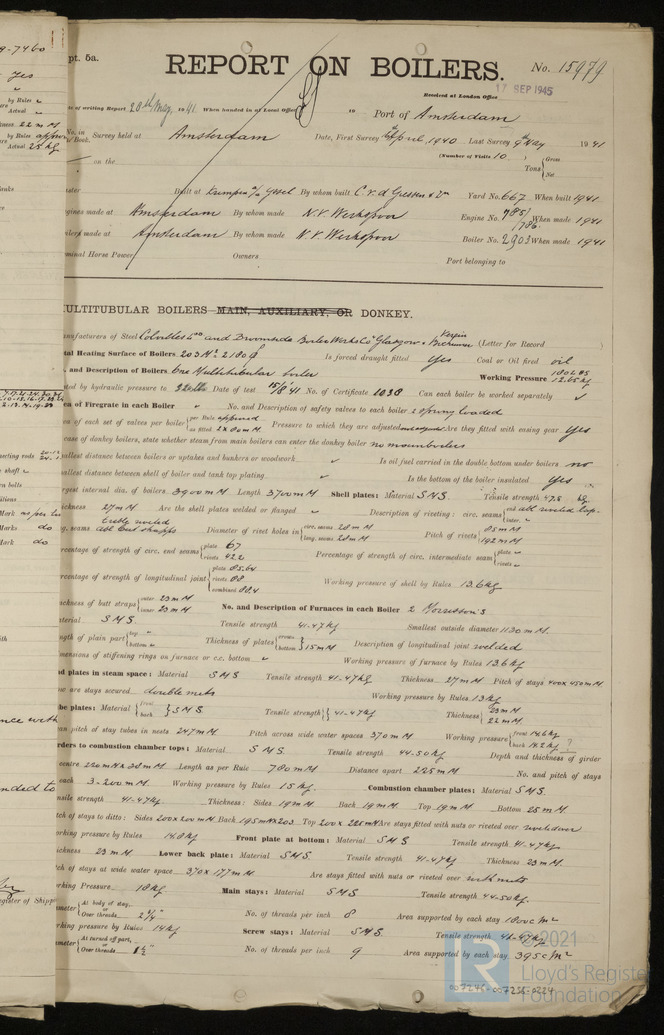 pt. 5a.
REPORT ON BOILERS.
No. 15979
Received at London Office
17 SEP 1945
te of writing Report 28th May, 1941 When handed in at Local Office 19 Port of Amsterdam
No. in Book. Survey held at Amsterdam Date, First Survey April, 1940 Last Survey 9th May 1941
(Number of Visits 10 )
on the Tons { Gross Net
Built at Krimpen a/d Yssel By whom built C. v. d. Giessen & Yard No. 667 When built 1941
gines made at Amsterdam By whom made N.V. Werkspoor Engine No. 785/786 When made 1941
ilers made at Amsterdam By whom made N.V. Werkspoor Boiler No. 2903 When made 1941
ominal Horse Power Owners Port belonging to
ULTITUBULAR BOILERS MAIN, AUXILIARY, OR DONKEY.
anufacturers of Steel Colvilles Ltd and Glasgow (Letter for Record )
tal Heating Surface of Boilers 203 M² = 2180 Is forced draught fitted Yes Coal or Oil fired oil
. and Description of Boilers One Multitubular boiler Working Pressure 180 lbs 12.65 kg
ted by hydraulic pressure to Date of test 15/8/41 No. of Certificate 1038 Can each boiler be worked separately
ea of Firegrate in each Boiler No. and Description of safety valves to each boiler 2 spring loaded
ea of each set of valves per boiler { per Rule approved as fitted 2x80 m M Pressure to which they are adjusted Are they fitted with easing gear Yes
case of donkey boilers, state whether steam from main boilers can enter the donkey boiler no main boilers
allest distance between boilers or uptakes and bunkers or woodwork Is oil fuel carried in the double bottom under boilers no
allest distance between shell of boiler and tank top plating Is the bottom of the boiler insulated yes
rgest internal dia. of boilers 3900 m M Length 3700 m M Shell plates: Material S M S. Tensile strength 47.5 kg
ickness 27 m M Are the shell plates welded or flanged Description of riveting: circ. seams { end dbl riveted lap. inter.
g. seams treble riveted dbl butt straps Diameter of rivet holes in { circ. seams 28 m M long. seams 28 m M Pitch of rivets { 85 m M 192 m M
ercentage of strength of circ. end seams { plate 67 rivets 42.2 Percentage of strength of circ. intermediate seam { plate rivets
rcentage of strength of longitudinal joint { plate 85.64 rivets 88 combined 88.4 Working pressure of shell by Rules 13.6 kg
ickness of butt straps { outer 23 m M inner 23 m M No. and Description of Furnaces in each Boiler 2 Morrison's
aterial S M S. Tensile strength 41-47 kg Smallest outside diameter 1130 m M.
ngth of plain part { top bottom Thickness of plates { crown bottom } 15 m M Description of longitudinal joint welded
mensions of stiffening rings on furnace or c.c. bottom Working pressure of furnace by Rules 13.6 kg
d plates in steam space: Material S M S Tensile strength 41-47 kg Thickness 27 m M Pitch of stays 400 x 450 m M
ow are stays secured double nuts Working pressure by Rules 13 kg
be plates: Material { front back } S M S Tensile strength { 41-47 kg Thickness { 23 m M 22 m M.
an pitch of stay tubes in nests 247 m M Pitch across wide water spaces 370 m M Working pressure { front 14.6 kg back 14.2 kg ?
rders to combustion chamber tops: Material S M S. Tensile strength 44-50 kg. Depth and thickness of girder
centre 220 m M x 28 m M Length as per Rule 780 m M Distance apart 225 m M No. and pitch of stays
each 3-200 m M. Working pressure by Rules 15 kg. Combustion chamber plates: Material S M S.
nsile strength 41-47 kg Thickness: Sides 19 m M Back 19 m M Top 19 m M Bottom 25 m M
tch of stays to ditto: Sides 200 x 200 m M Back 195 m M x 203 Top 200 x 225 m M Are stays fitted with nuts or riveted over riveted over
orking pressure by Rules 14.8 kg Front plate at bottom: Material S M S Tensile strength 41-47 kg
ickness 23 m M Lower back plate: Material S M S Tensile strength 41-47 kg Thickness 23 m M.
tch of stays at wide water space 370 x 177 m M Are stays fitted with nuts or riveted over with nuts
rking Pressure 18 kg Main stays: Material S M S Tensile strength 44-50 kg.
ameter { At body of stay, or Over threads 2 3/4" No. of threads per inch 8 Area supported by each stay 1800 c/m²
rking pressure by Rules 14 kg Screw stays: Material S M S. Tensile strength 41-47 kg
ameter { At turned off part, or Over threads 1 1/2" No. of threads per inch 9 Area supported by each stay 395 c/m²
© 2021
Lloyd's Register
Foundation
007246-007255-0224